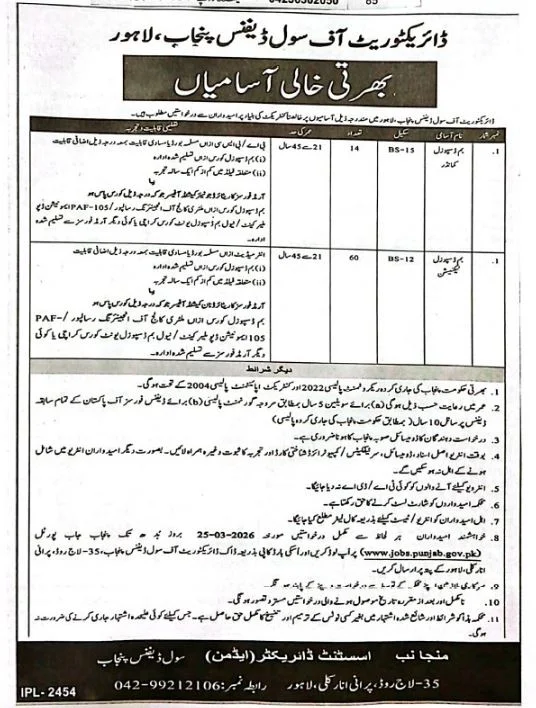 ڈائریکٹوریٹ آف سول ڈیفنس پنجاب، لاہور
بھرتی خالی آسامیاں
ڈائریکٹوریٹ آف سول ڈیفنس پنجاب، لاہور میں مندرجہ ذیل آسامیوں پر خالصتاً کنٹریکٹ کی بنیاد پر امیدواران سے درخواستیں مطلوب ہیں۔
نمبر شمار نام آسامی سکیل تعداد عمر کی حد تعلیمی قابلیت و تجربہ
1. بم ڈسپوزل کمانڈر BS-15 14 21 سے 45 سال بی اے/بی ایس سی ازاں مسلمہ بورڈ یا مساوی قابلیت بمعہ درجہ ذیل اضافی قابلیت
(i) بم ڈسپوزل کورس ازاں تسلیم شدہ ادارہ
(ii) متعلقہ فیلڈ میں کم از کم ایک سالہ تجربہ
یا
آرمڈ فورسز کا ریٹائرڈ جونیئر کمیشنڈ آفیسر جو کہ درجہ ذیل کورس پاس ہو
بم ڈسپوزل کورس ازاں ملٹری کالج آف انجینئرنگ رسالپور/PAF-105 ایمونیشن ڈپو
ملیر کینٹ/نیول بم ڈسپوزل یونٹ کورس کراچی یا کوئی دیگر آرمڈ فورسز سے تسلیم شدہ
ادارہ۔
1. بم ڈسپوزل ٹیکنیشن BS-12 60 21 سے 45 سال انٹرمیڈیٹ ازاں مسلمہ بورڈ یا مساوی قابلیت بمعہ درجہ ذیل اضافی قابلیت
(i) بم ڈسپوزل کورس ازاں تسلیم شدہ ادارہ
(ii) متعلقہ فیلڈ میں کم از کم ایک سالہ تجربہ
یا
آرمڈ فورسز کا ریٹائرڈ نان کمیشنڈ آفیسر جو کہ درجہ ذیل کورس پاس ہو
بم ڈسپوزل کورس ازاں ملٹری کالج آف انجینئرنگ رسالپور/PAF-
105 ایمونیشن ڈپو ملیر کینٹ/نیول بم ڈسپوزل یونٹ کورس کراچی یا کوئی
دیگر آرمڈ فورسز سے تسلیم شدہ ادارہ۔
دیگر شرائط
1. بھرتی حکومت پنجاب کی جاری کردہ ریکروٹمنٹ پالیسی 2022 اور کنٹریکٹ اپائنٹمنٹ پالیسی 2004 کے تحت ہوگی۔
2. عمر میں رعایت حسب ذیل ہوگی (a) برائے سویلین 5 سال بمطابق مروجہ گورنمنٹ پالیسی (b) برائے ڈیفنس فورسز آف پاکستان کے تمام سابقہ
ڈیفنس پرسنل 10 سال (بمطابق حکومت پنجاب کی جاری کردہ پالیسی)
3. درخواست دہندگان کا ڈومیسائل صوبہ پنجاب کا ہونا ضروری ہے۔
4. بوقت انٹرویو اصل اسناد، ڈومیسائل، سرٹیفکیٹس/کمپیوٹرائزڈ شناختی کارڈ اور تجربہ کا ثبوت وغیرہ ہمراہ لائیں۔ بصورت دیگر امیدواران انٹرویو میں شامل
ہونے کے اہل نہ ہو سکیں گے۔
5. انٹرویو کیلئے آنے والوں کو کوئی ٹی اے/ڈی اے نہ دیا جائیگا۔
6. محکمہ امیدواروں کو شارٹ لسٹ کرنے کا حق رکھتا ہے۔
7. اہل امیدواران کو انٹرویو/ٹیسٹ کیلئے بذریعہ کال لیٹر مطلع کیا جائیگا۔
8. خواہشمند امیدواران ہر لحاظ سے مکمل درخواستیں مورخہ 25-03-2026 بروز بدھ تک پنجاب جاب پورٹل
(www.jobs.punjab.gov.pk) پر اپ لوڈ کریں اور اسکی ہارڈ کاپی بذریعہ ڈاک ڈائریکٹوریٹ آف سول ڈیفنس پنجاب، 35-لاج روڈ، پرانی
انارکلی، لاہور کے پتہ پر ارسال کریں۔
9. سرکاری ملازمین اپنے محکمہ کے
10. نامکمل اور بعد از مقررہ تاریخ موصول ہونے والی درخواستیں مسترد تصور ہوگی۔
11. محکمہ ہذا کو شرائط اور شائع شدہ اشتہار میں بغیر کسی نوٹس کے ترمیم اور تنسیخ کا مکمل حق حاصل ہے۔ جس کیلئے کوئی علیحدہ اشتہار جاری کرنے کی ضرورت نہ
ہوگی۔
منجانب اسسٹنٹ ڈائریکٹر (ایڈمن) سول ڈیفنس پنجاب
35-لاج روڈ، پرانی انارکلی، لاہور رابطہ نمبر: 042-99212106
IPL-2454